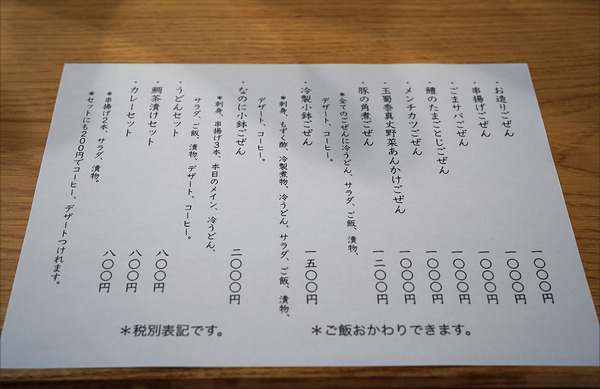 ・お造りごぜん 一〇〇〇円
・串揚げごぜん 一〇〇〇円
・ごまサバごぜん 一〇〇〇円
・鱧のたまごとじごぜん 一〇〇〇円
・メンチカツごぜん 一〇〇〇円
・玉蜀黍真丈野菜あんかけごぜん 一〇〇〇円
・豚の角煮ごぜん 一二〇〇円
＊全てのごぜんに冷うどん、サラダ、ご飯、漬物、
デザート、コーヒー。
・冷製小鉢ごぜん 一五〇〇円
＊刺身、もずく酢、冷製煮物、冷うどん、サラダ、ご飯、漬物、
デザート、コーヒー。
・なのに小鉢ごぜん 二〇〇〇円
＊刺身、串揚げ3本、本日のメイン、冷うどん、
サラダ、ご飯、漬物、デザート、コーヒー。
・うどんセット 八〇〇円
・鯛茶漬けセット 八〇〇円
・カレーセット 八〇〇円
＊串揚げ2本、サラダ、漬物。
＊セットにも200円でコーヒー、デザートつけれます。
＊ご飯おかわりできます。
＊税別表記です。